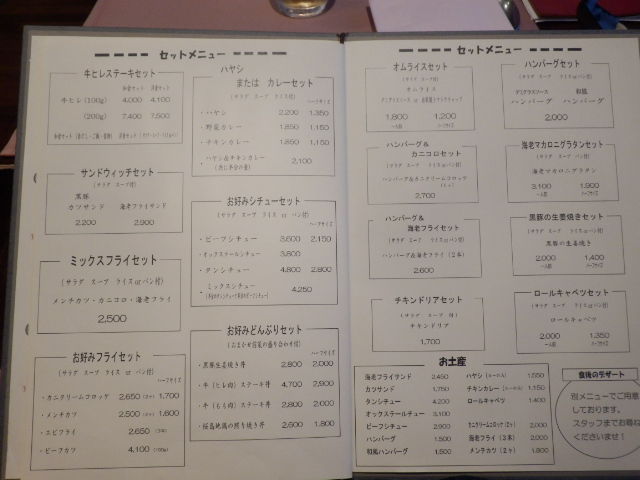 セットメニュー
牛ヒレステーキセット
和食セット 洋食セット
牛ヒレ (100g) 4,000 4,100
(200g) 7,400 7,500
サンドウィッチセット
(サラダ スープ付)
黒豚
カツサンド 海老フライサンド
2,200 2,900
ミックスフライセット
(サラダ スープ ライスorパン付)
メンチカツ・カニコロ・海老フライ
2,500
お好みフライセット
(サラダ スープ ライス or パン付)
ハーフサイズ
・カニクリームコロッケ 2,650 (3ヶ) 1,700
・メンチカツ 2,500 (2ヶ) 1,600
・エビフライ 2,650 (3本)
・ビーフカツ 4,100 (100g)
ハヤシ
または カレーセット
(サラダ スープ ライス付)
ハーフサイズ
・ハヤシ 2,200 1,350
・野菜カレー 1,850 1,150
・チキンカレー 1,850 1,150
・ハヤシ&チキンカレー 2,100
お好みシチューセット
(サラダ スープ ライス or パン付)
ハーフサイズ
・ビーフシチュー 3,600 2,150
・オックステールシチュー 3,800
・タンシチュー 4,800 2,800
・ミックスシチュー 4,250
お好みどんぶりセット
(おまかせ前菜の盛り合わせ付)
ハーフサイズ
・黒豚生姜焼き丼 2,800 2,000
・牛 (ヒレ肉) ステーキ丼 4,700 2,900
・牛 (もも肉) ステーキ丼 2,800 2,000
・桜島地鶏の照り焼き丼 2,600 1,800
セットメニュー
オムライスセット
(サラダ スープ付)
オムライス
デミグラスソース or 自家製トマトケチャップ
1,800 1,200
一人前 ハーフサイズ
ハンバーグ&
カニコロセット
(サラダ スープ ライス or パン付)
ハンバーグ&カニクリームコロッケ
2,700
ハンバーグ&
海老フライセット
(サラダ スープ ライス or パン付)
ハンバーグ&海老フライ (2本)
2,600
チキンドリアセット
(サラダ スープ 付)
チキンドリア
1,700
ハンバーグセット
(サラダ スープ ライス or パン付)
デミグラスソース 和風
ハンバーグ ハンバーグ
2,000
海老マカロニグラタンセット
(サラダ スープ ライス or パン付)
海老マカロニグラタン
3,100 1,900
一人前 ハーフサイズ
黒豚の生姜焼きセット
(サラダ スープ ライス or パン付)
黒豚の生姜焼き
2,000 1,400
一人前 ハーフサイズ
ロールキャベツセット
(サラダ スープ ライス or パン付)
ロールキャベツ
2,000 1,350
一人前 ハーフサイズ
お土産
海老フライサンド 2,450
カツサンド 1,750
タンシチュー 4,200
オックステールチュー 3,100
ビーフシチュー 2,900
ハンバーグ 1,500
和風ハンバーグ 1,500
ハヤシ (ルーのみ) 1,550
チキンカレー (ルーのみ) 1,150
ロールキャベツ 1,400
カニクリームコロッケ (2ヶ) 2,000
海老フライ (3本) 2,000
メンチカツ (2ヶ) 1,800
食後のデザート
別メニューでご用意
しております。
スタッフまでお尋ね
くださいませ!